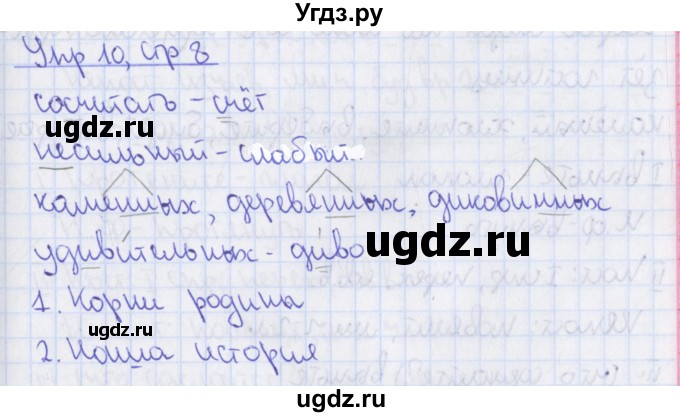 Угдз.ру
Упр 10, стр 8
сосчитать - счёт
несильный - слабый
каменных, деревянных, диковинных
удивительных - диво
1. Корни родины
2. Наша история
ugdz.ru
ugdz.ru
ugdz.ru
ugdz.ru
ugdz.ru
Угдз.ру